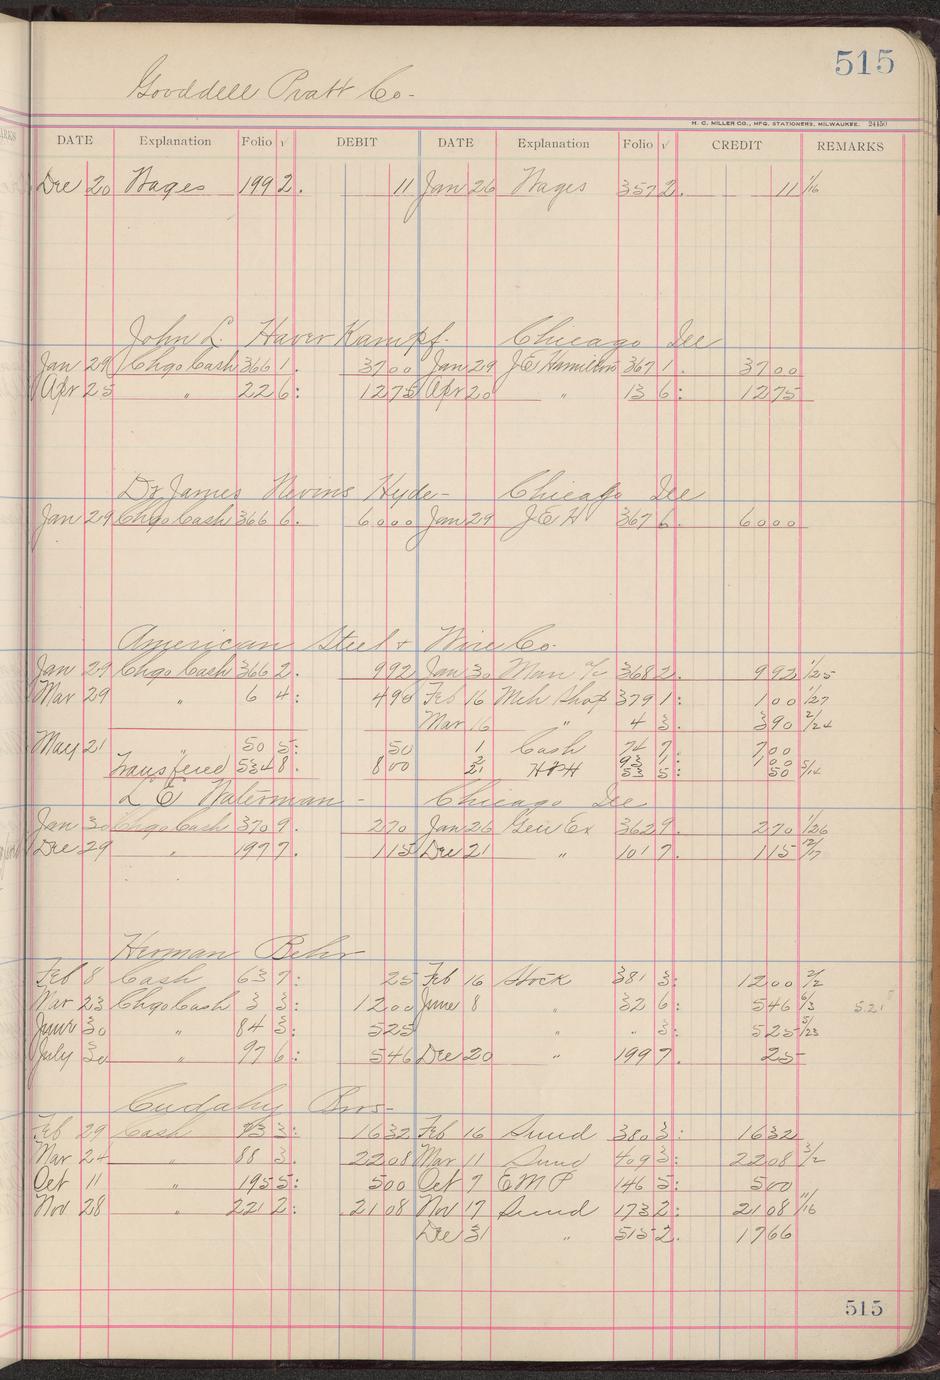 515
Gooddell Pratt Co-
H. C. MILLER CO., MFG. STATIONERS, MILWAUKEE. 24150
DATE Explanation Folio √ DEBIT DATE Explanation Folio √ CREDIT REMARKS
Dec 20 Wages 199 2. 11 Jan 26 Wages 357 2. 11 1/16
John L. HaverKampf. Chicago Ill
Jan 29 Chgo Cash 366 1. 37 00 Jan 29 J.E Hamilton 367 1. 37 00
Apr 25 " 22 6: 12 75 Apr 20 " 13 6: 12 75
Dr James Nevins Hyde- Chicago Ill
Jan 29 Chgo Cash 366 6. 60 00 Jan 29 J E H 367 6. 60 00
American Steel & Wire Co-
Jan 29 Chgo Cash 366 2. 9 92 Jan 30 Man a/c 368 2. 9 92 1/25
Mar 29 " 6 4: 4 90 Feb 16 Mch Shop 379 1: 1 00 1/27
Mar 16 " 4 3. 3 90 2/24
May 21 " 50 5: 50 1 Cash 74 7. 7 00
Transfered 534 8. 8 00 2 93 1: 1 00
21 H&H 53 5: 50 5/14
L E Waterman - Chicago Ill
Jan 30 Chgo Cash 370 9. 2 70 Jan 26 Gen Ex 362 9. 2 70 1/26
Dec 29 " 197 7. 1 15 Dec 21 " 101 7. 1 15 12/17
Herman Behr
Feb 8 Cash 63 7: 25 Feb 16 Stock 381 3: 12 00 2/2
Mar 23 Chgo Cash 3 3: 12 00 June 8 " 32 6: 5 46 6/3
June 30 " 84 3: 5 25 " " 3: 5 25 5/23
July 30 " 97 6: 5 46 Dec 20 " 199 7. 25
Cudahy Bros-
Feb 29 Cash 73 3: 16 32 Feb 16 Sund 380 3: 16 32
Mar 24 " 88 3. 22 08 Mar 11 Sund 409 3: 22 08 3/2
Oct 11 " 195 5: 5 00 Oct 7 E M P 146 5: 5 00
Nov 28 " 221 2: 21 08 Nov 17 Sund 173 2: 21 08 11/16
Dec 31 " 515 2. 17 66
515